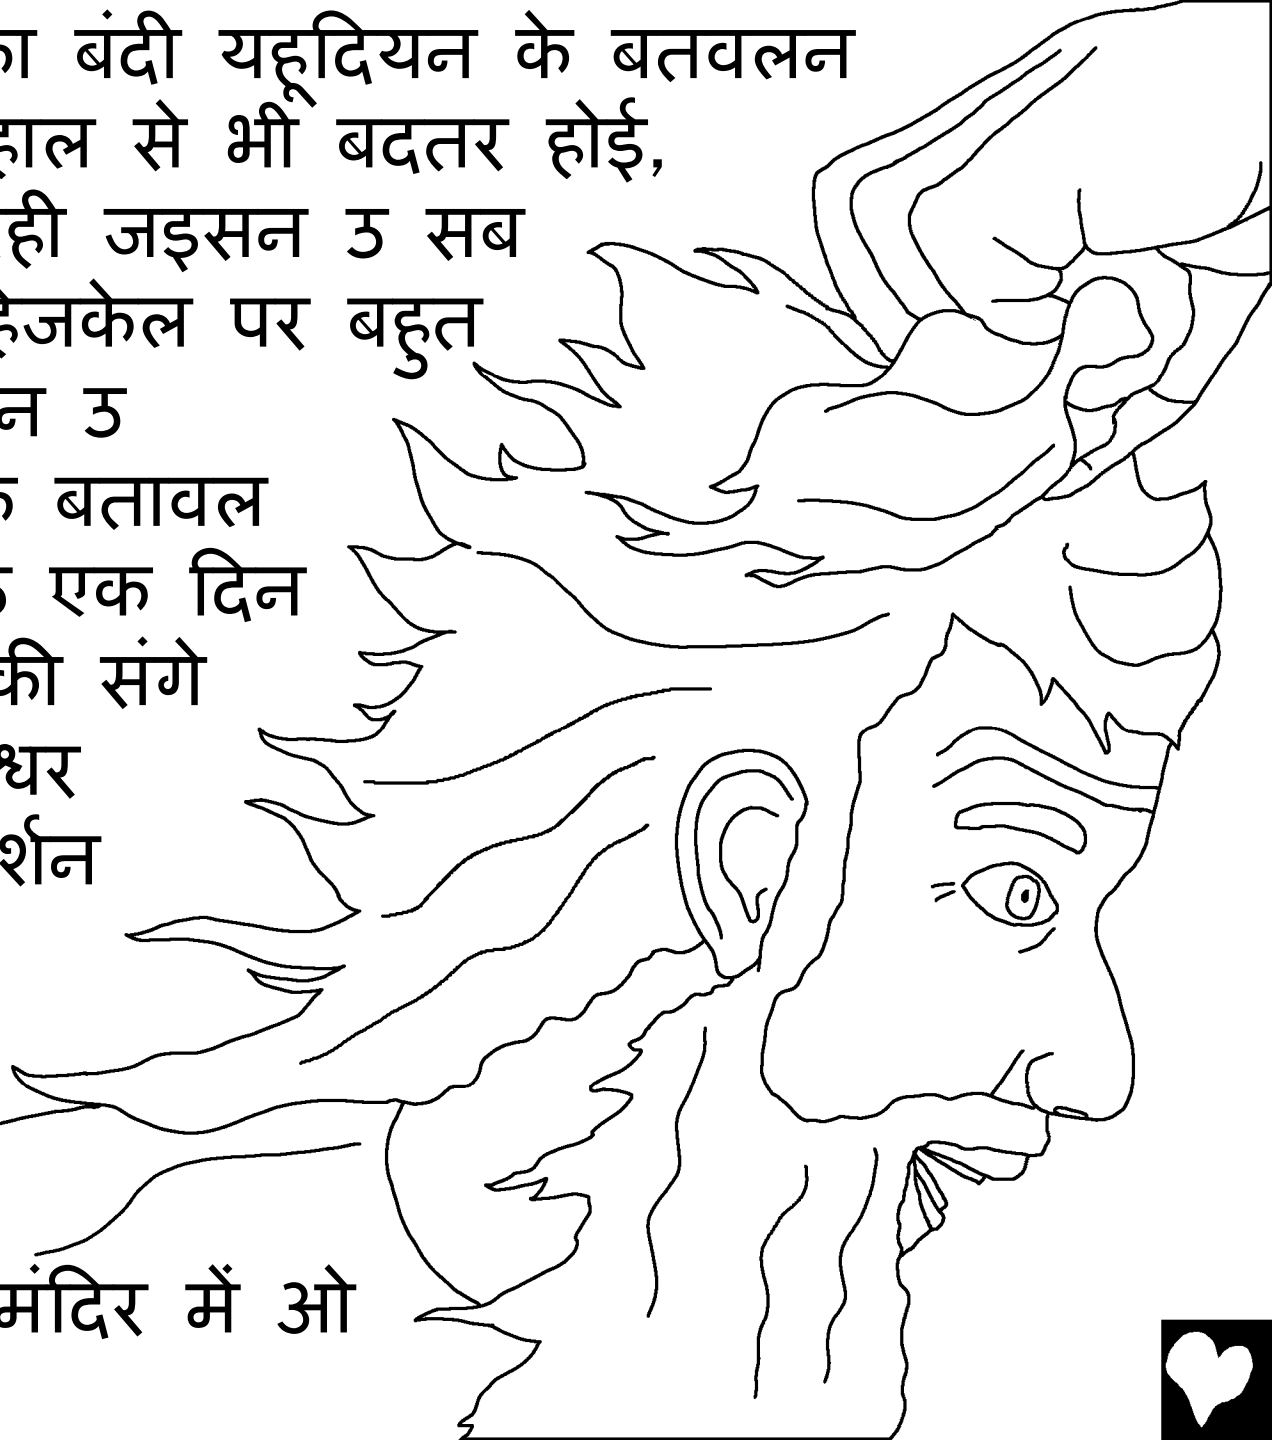 का बंदी यहूदियन के बतवलन
हाल से भी बदतर होई,
रही जइसन उ सब
हेजकेल पर बहुत
न उ
बतावल
एक दिन
की संगे
श्वर
र्शन
मंदिर में ओ